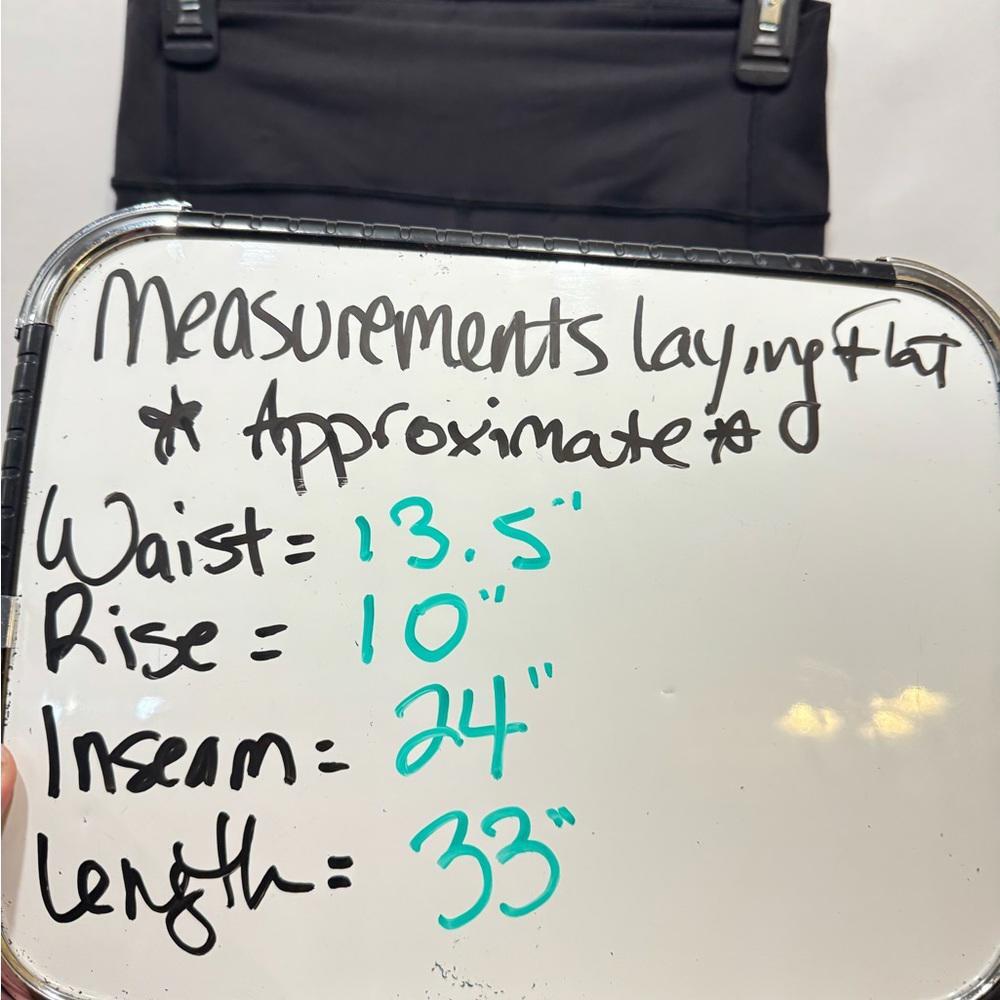 Measurements laying Flat
* Approximate *
Waist = 13.5"
Rise = 10"
Inseam = 24"
Length = 33"